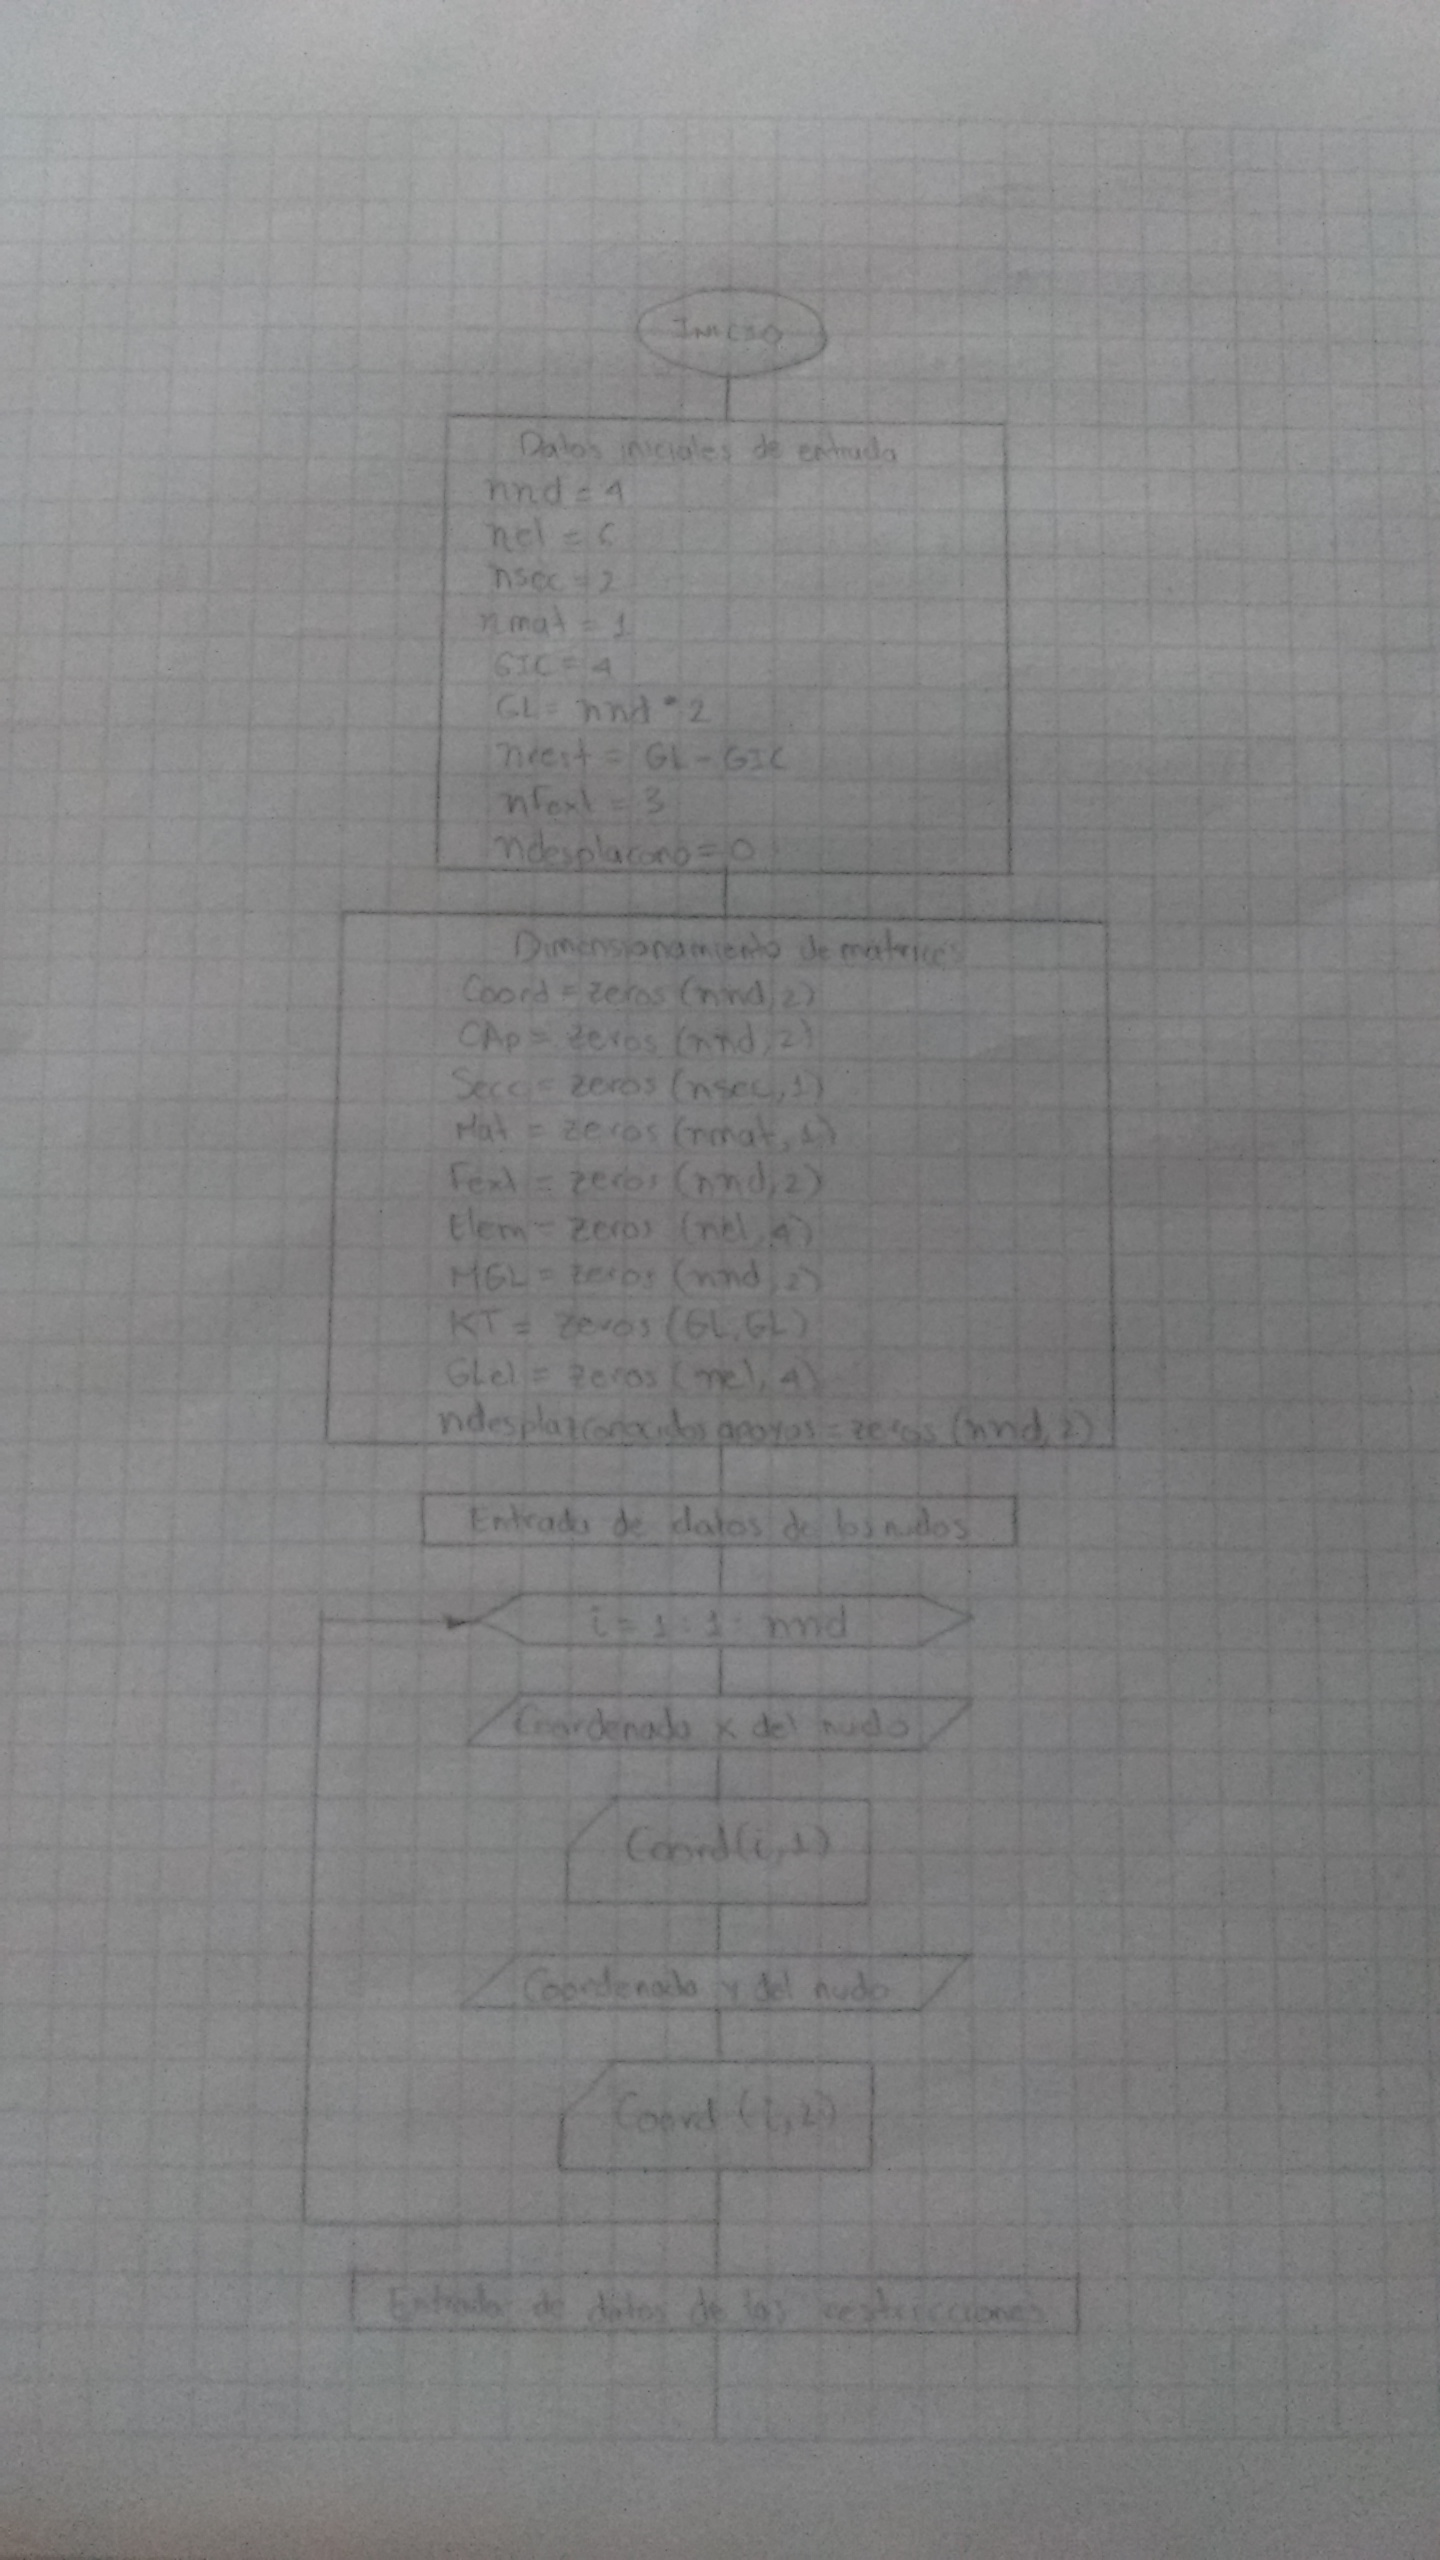 INICIO
Datos iniciales de entrada
nnd = 4
nel = 6
nsec = 2
nmat = 1
GIC = 4
GL = nnd * 2
nrest = GL - GIC
nFext = 3
ndesplacono = 0
Dimensionamiento de matrices
Coord = zeros (nnd, 2)
CAp = zeros (nnd, 2)
Secc = zeros (nsec, 1)
Mat = zeros (nmat, 1)
Fext = zeros (nnd, 2)
Elem = zeros (nel, 4)
MGL = zeros (nnd, 2)
KT = zeros (GL, GL)
GLel = zeros (nel, 4)
ndesplazconocidos apoyos = zeros (nnd, 2)
Entrada de datos de los nudos
i = 1 : 1 : nnd
Coordenada x del nudo
Coord (i, 1)
Coordenada y del nudo
Coord (i, 2)
Entrada de datos de las restricciones